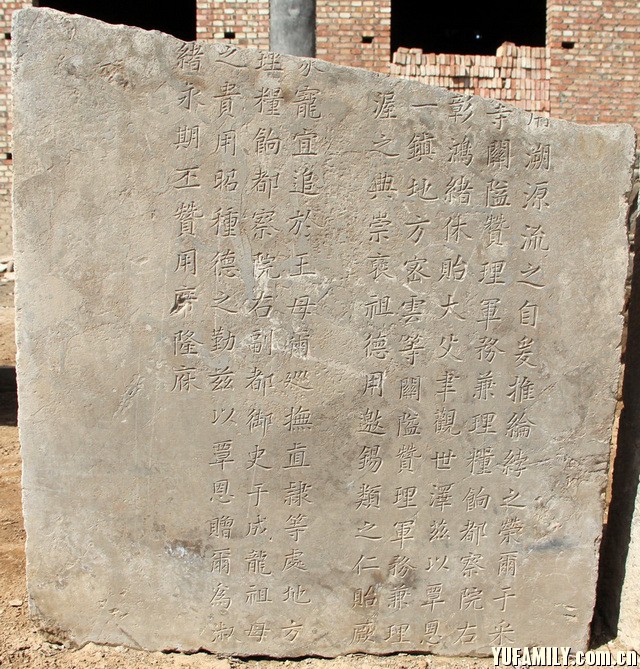 溯源流之自爰推綸綍之榮爾于采
等關隘贊理軍務兼理糧餉都察院右
彰鴻緒休貽大父聿觀世澤茲以覃恩
一鎮地方密雲等關隘贊理軍務兼理
渥之典崇褒祖德用邀錫類之仁貽厥
寵宜追於王母爾巡撫直隸等處地方
理糧餉都察院右副都御史于成龍祖母
之貴用昭種德之勤茲以覃恩贈爾為淑
緒永期丕贊用席隆庥
YUFAMILY.com.cn